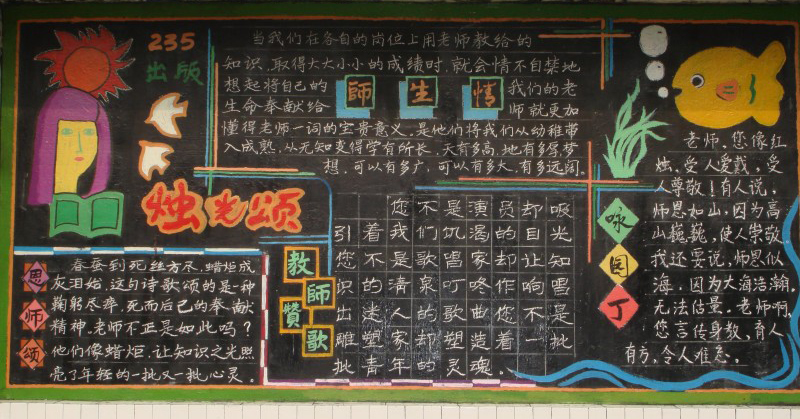 235
出版
烛光颂
当我们在各自的岗位上用老师教给的
知识,取得大大小小的成绩时,就会情不自禁地
想起将自己的
生命奉献给
師生情
我们的老
师就更加
懂得老师一词的宝贵意义。是他们将我们从幼稚带
入成熟,从无知变得学有所长。天有多高,地有多厚,梦
想,可以有多广,可以有多大,有多远阔。
恩师颂
春蚕到死丝方尽,蜡炬成
灰泪始,这句诗歌颂的是一种
鞠躬尽瘁,死而后已的奉献
精神。老师不正是如此吗?
他们像蜡炬,让知识之光照
亮了年轻的一批又一批心灵。
教師贊歌
您不是演员却吸
引着我们饥渴的目光
您不是歌唱家却让知
识的清泉叮咚作响唱
出迷人的歌曲您不是
雕塑家却塑造着一批
批青年的灵魂。
咏园丁
老师,您像红
烛,受人爱戴,受
人尊敬!有人说,
师恩如山,因为高
山巍巍,使人崇敬。
我还要说,师恩似
海,因为大海浩瀚,
无法估量。老师啊,
您言传身教,育人
有方,令人难忘。